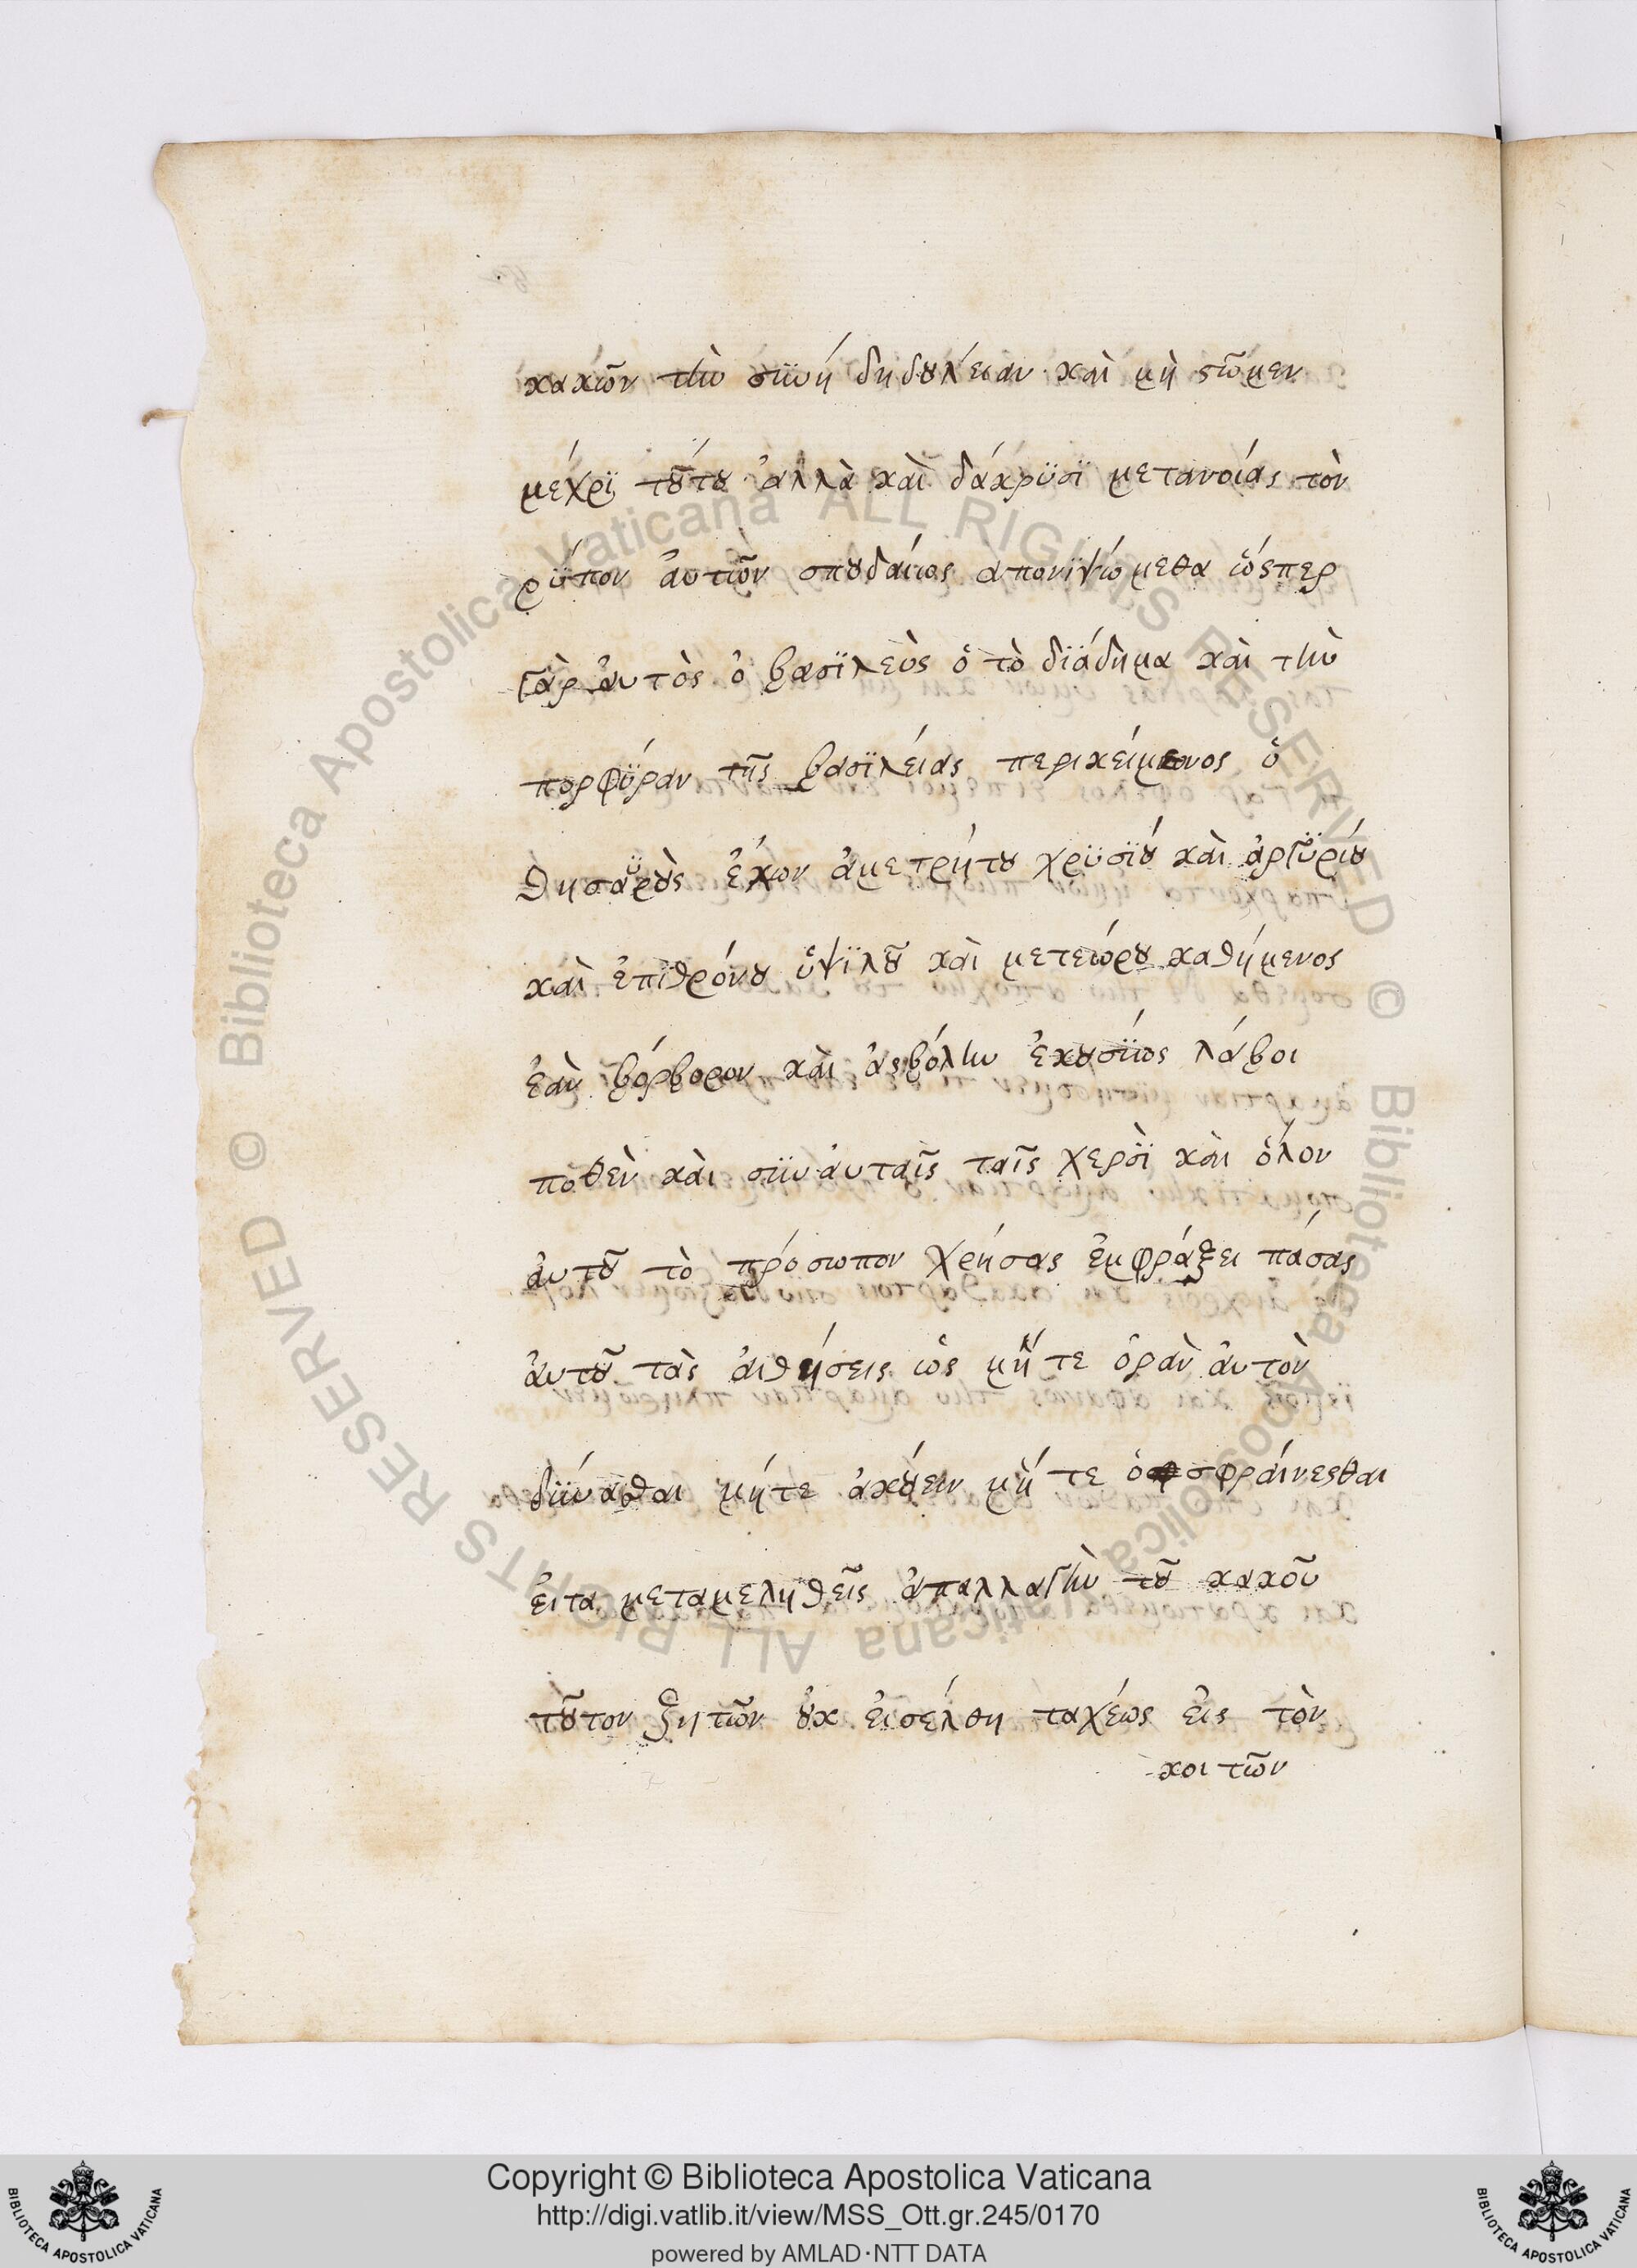 κακῶν τὴν σϋνή δηδουλείαν καὶ μὴ στῶμεν
μέχρϊ τούτου ἀλλὰ καὶ δάκρϋσϊ μετανοίας τὸν
ρΰπον ἀυτῶν σπουδαίως απονϊψώμεθα ὥσπερ
γὰρ ἀυτὸς ὁ βασϊλεὺς ὁ τὸ δϊάδημα καὶ τὴν
πορφΰραν τῆς βασϊλείας περικείμενος ὁ
θησαϋροὺς ἔχων ἀμετρήτου χρϋσϊού καὶ ἀργϋρίου
καὶ ἐπϊθρόνου ὑψϊλοῦ καὶ μετεώρου καθήμενος
ἐὰν βόρβορον καὶ ἀσβόλην ἑκουσΐως λάβοι
πὸθεὶν καὶ σϋν ἀυταῖς ταῖς χερσῒ καὶ ὅλον
ἀυτοῦ τὸ πρόσωπον χρήσας ἐμφράξει πάσας
ἀυτοῦ τὰς ἀισθήσεις ὡς μή τε ὁρὰν ἀυτὸν
δΰνασθαι μήτε ἀκούειν μή τε ὀσφράινεσθαι
ἐιτα μεταμεληθεῖς ἀπαλλαγὴν τοῦ κακοῦ
τοῦτον ζητῶν οὐκ ἐισέλθη ταχέως ἐις τὸν
κοιτῶν
Copyright © Biblioteca Apostolica Vaticana
http://digi.vatlib.it/view/MSS_Ott.gr.245/0170
powered by AMLAD·NTT DATA